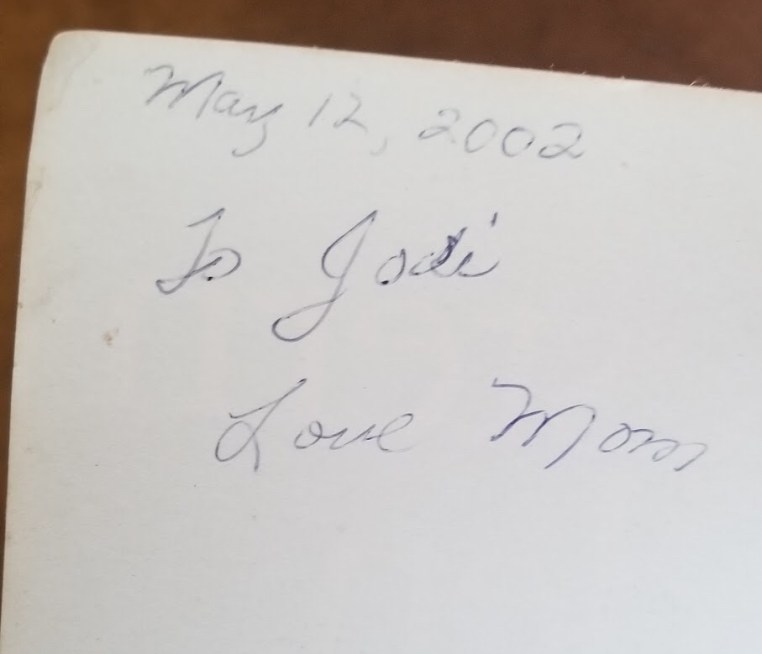 May 12, 2002
To Jodi
Love Mom